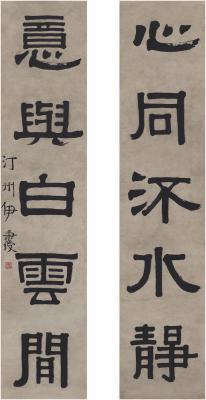 心同㳅水靜
意與白雲間
汀州伊秉綬